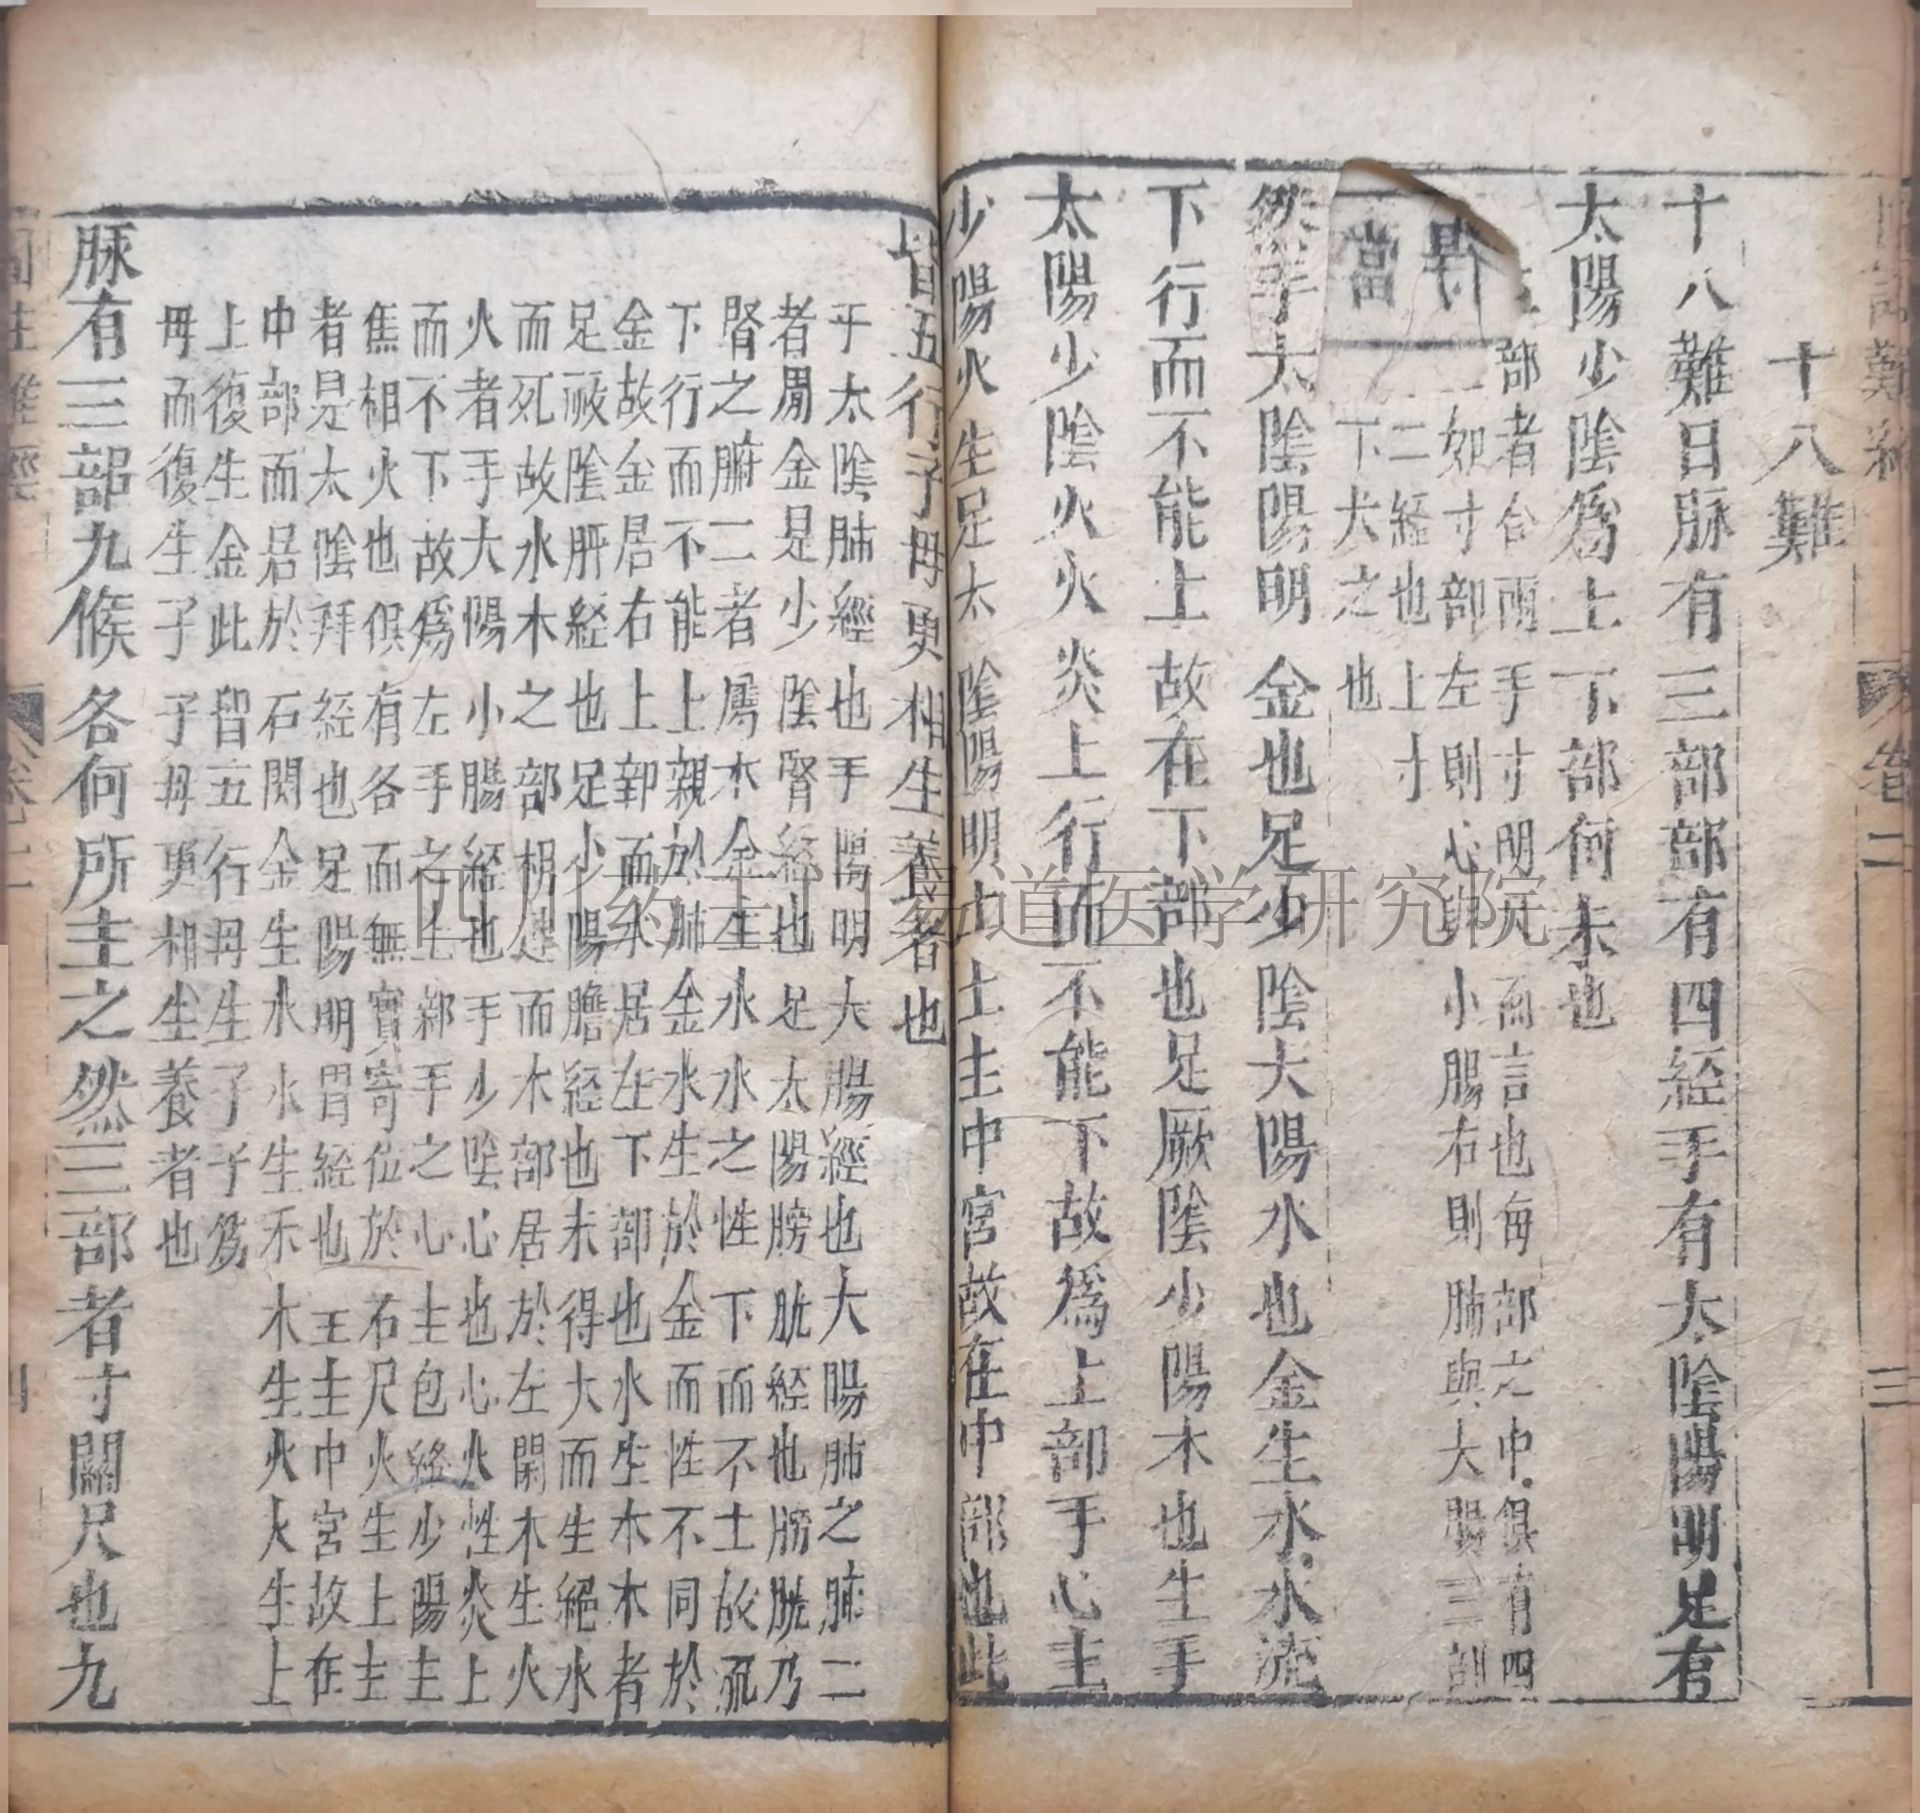 十八難
十八難曰脉有三部部有四經手有太陰陽明足有
太陽少陰爲上下部何未也
部者合兩手寸明尺而言也每部之中俱有四
如寸部左則心與小腸右則肺與大腸三部
二經也上寸
下犬之也
當
然手太陰陽明金也足少陰太陽水也金生水水流
下行而不能上故在下部也足厥陰少陽木也生手
太陽少陰火火炎上行而不能下故爲上部手心主
少陽火生足太陰陽明土土主中宮故在中部也此
皆五行子毋更相生養者也
手太陰肺經也手陽明大腸經也大腸肺之腑二
者属金是少陰腎經也足太陽膀胱經也膀胱乃
腎之腑二者屬木金生水水之性下而不土故流
下行而不能上親於肺金水生於金而性不同於
金故金居右上部而水居左下部也水生木木者
足厥陰肝經也足少陽膽經也未得大而生絕水
而死故水木之部相連而木部居於左関木生火
火者手太陽小腸經也手少陰心也心火性炎上
而不下故爲左手之上部手之心主包絡少陽主
焦相火也俱有各而無實寄位於石尺火生上主
者是太陰拜經也足陽明胃經也王主中宮故在
中部而居於石関金生水水生禾木生火大生上
上復生金此皆五行毋生子子爲
毋而復生子子毋更相生養者也
脉有三部九候各何所主之然三部者寸關尺也九
圖註難經
卷二
三
四川药王门易道医学研究院